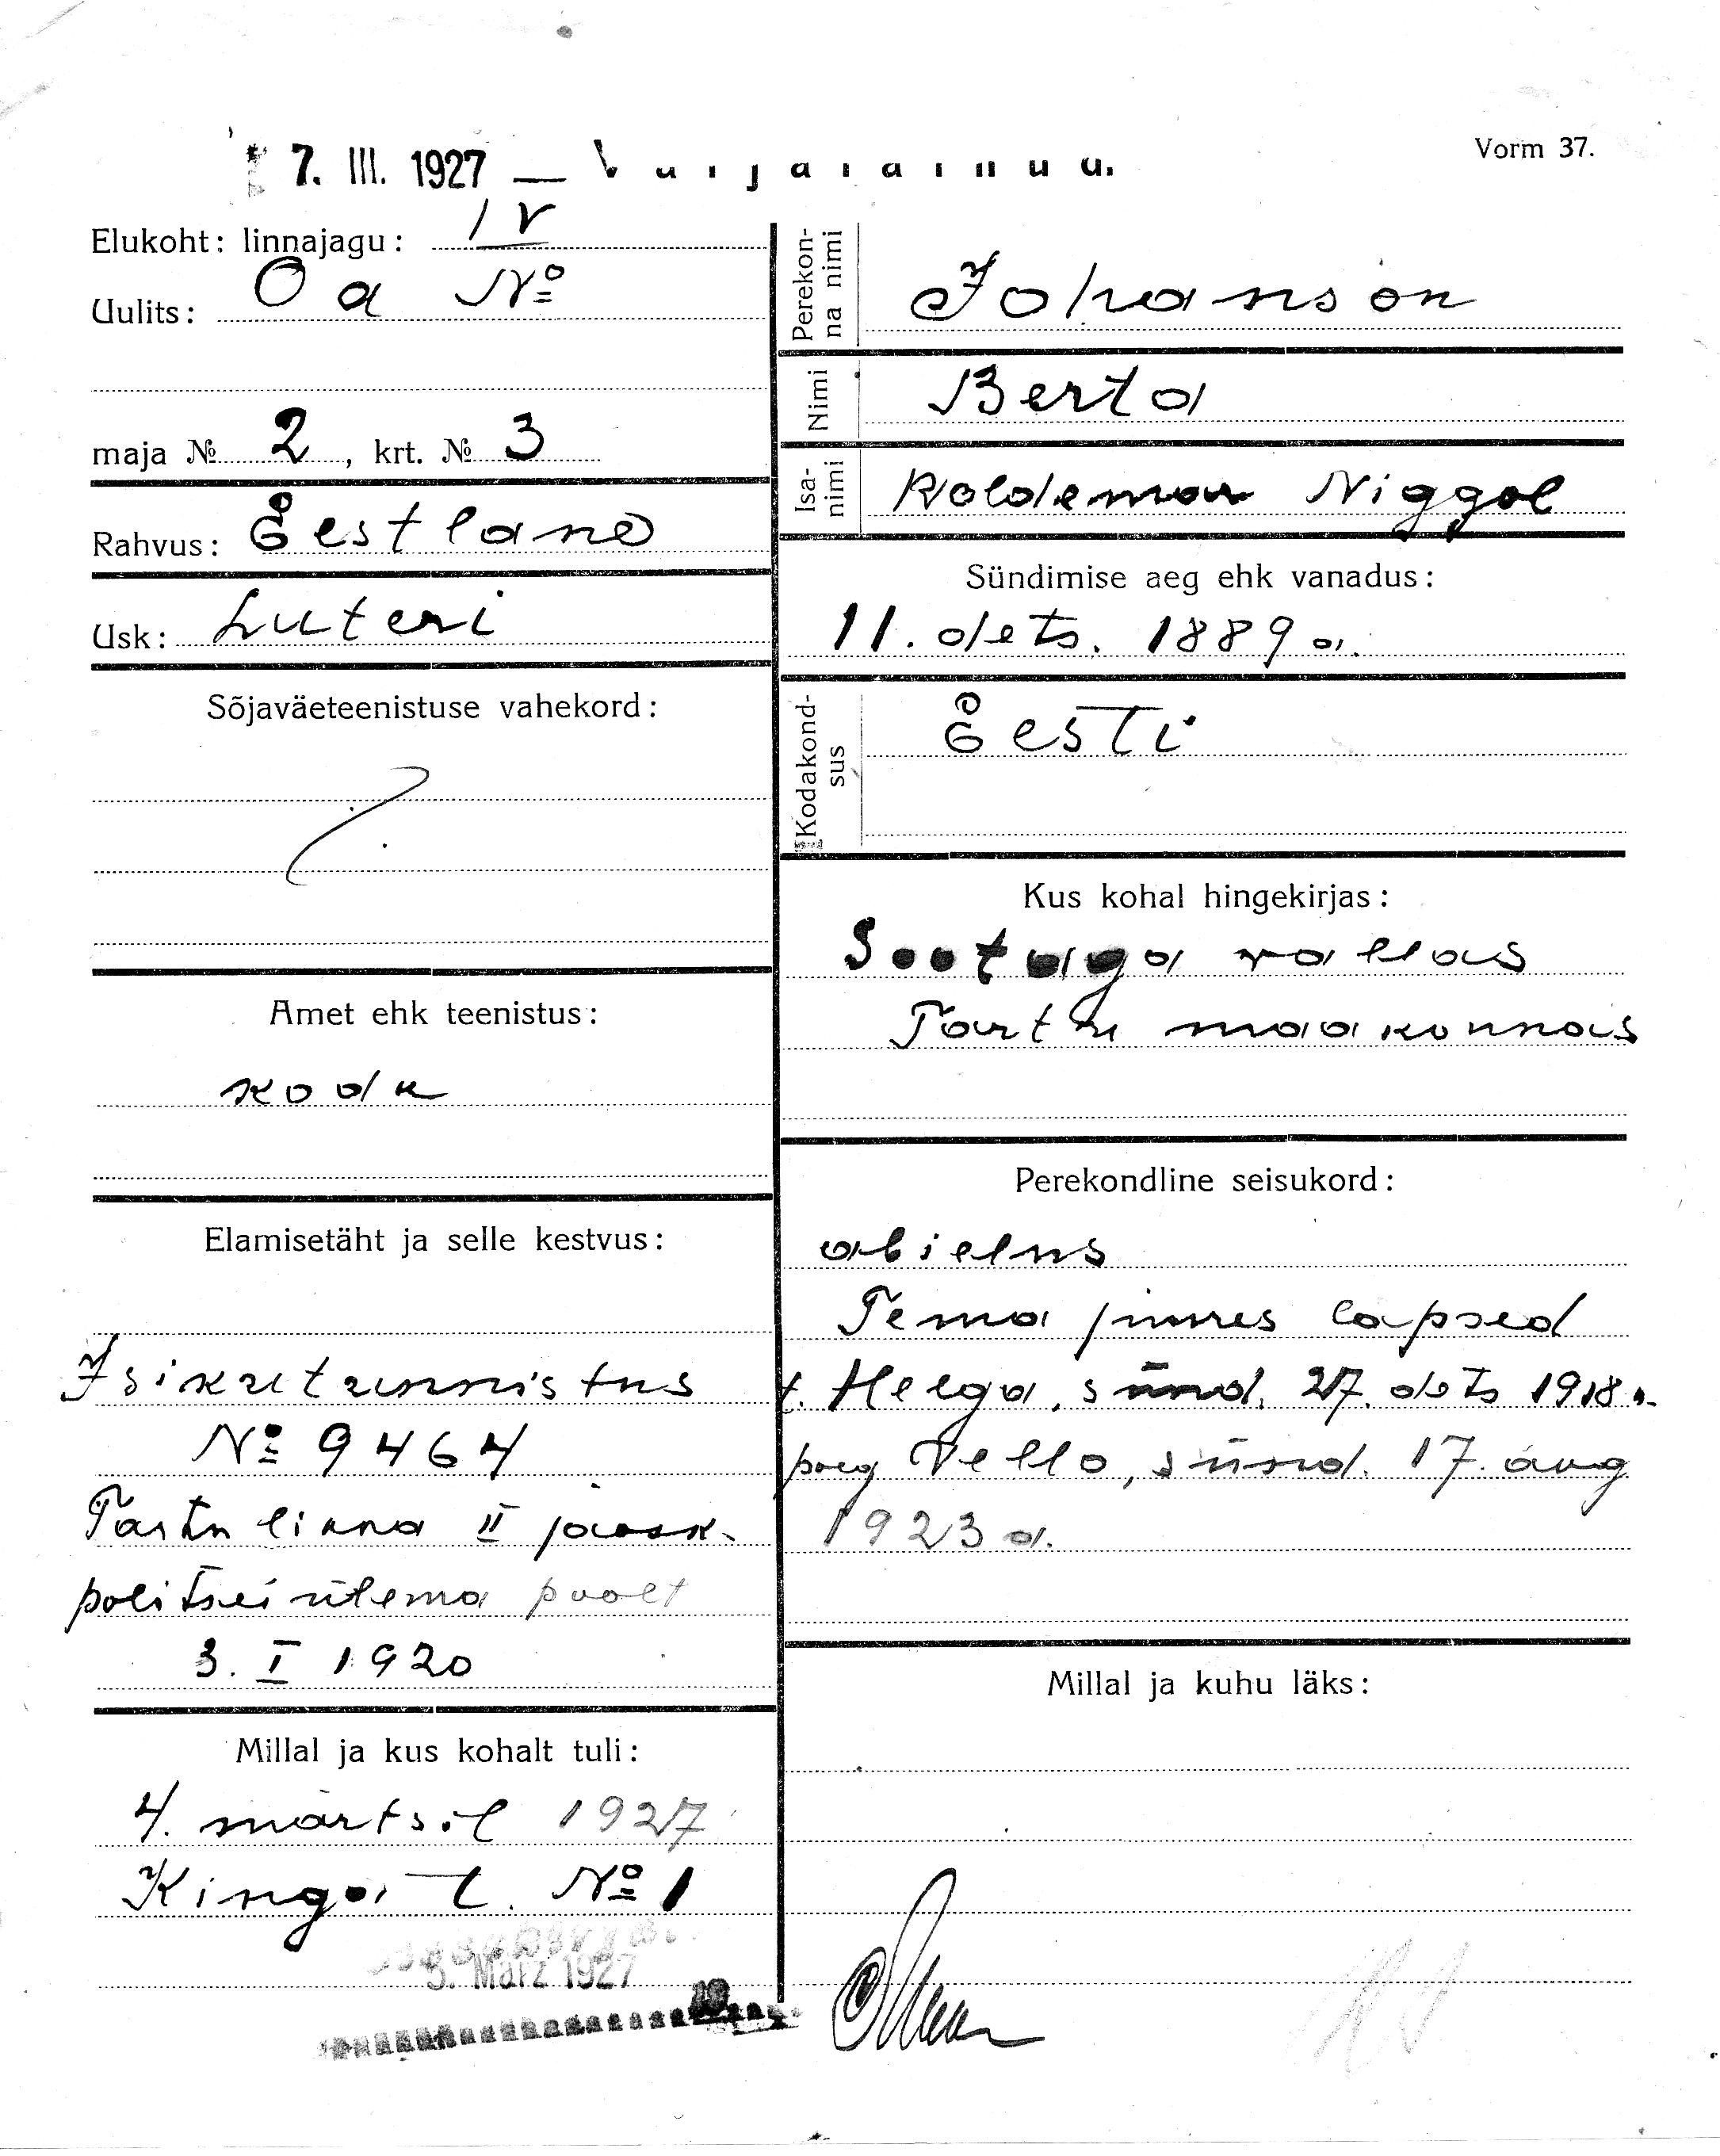 7. III. 1927
Vorm 37.
Elukoht: linnajagu: IV
Uulits: Oa №
maja № 2, krt. № 3
Rahvus: Eestlane
Usk: Luteri
Sõjaväeteenistuse vahekord:
Amet ehk teenistus:
kodu
Elamisetäht ja selle kestvus:
Isikutunnistus
№ 9464
Tartu linna II jaosk.
politseiülema poolt
3. I 1920
Millal ja kus kohalt tuli:
4. märtsil 1927
Kinga t. № 1
5. März 1927
Perekon-
na nimi
Johanson
Nimi Berta
Isa-
nimi
Woldemar Niggol
Sündimise aeg ehk vanadus:
11. dets. 1889 a.
Kodakond-
sus
Eesti
Kus kohal hingekirjas:
Sootaga vallas
Tartu maakonnas
Perekondline seisukord:
abielus
Tema juures lapsed
t. Helga, sünd. 27. dets 1918 a.
poeg Vello, sünd. 17. aug
1923 a.
Millal ja kuhu läks: